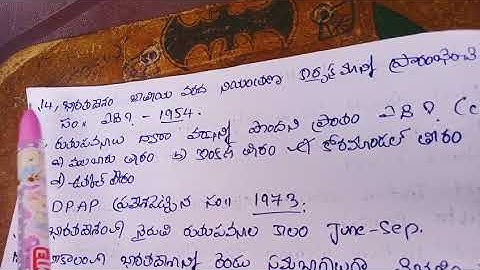 14, భారతదేశం జాతీయ వరద నియంత్రణ కార్యక్రమాన్ని ప్రారంభించి
సం॥ ఏది? - 1954.
ఋతుపవనాలు వర్షాన్ని పొందని ప్రాంతం ఏది? (c
a) మలబారు తీరం b) కొంకణ్ తీరం c) కోరమాండల్ తీరం
d) తీరం
DPAP ప్రవేశపెట్టిన సం॥ 1973.
భారతదేశంలో నైరుతి రుతుపవనాల కాలం June-Sep.
భారతదేశాన్ని రెండు